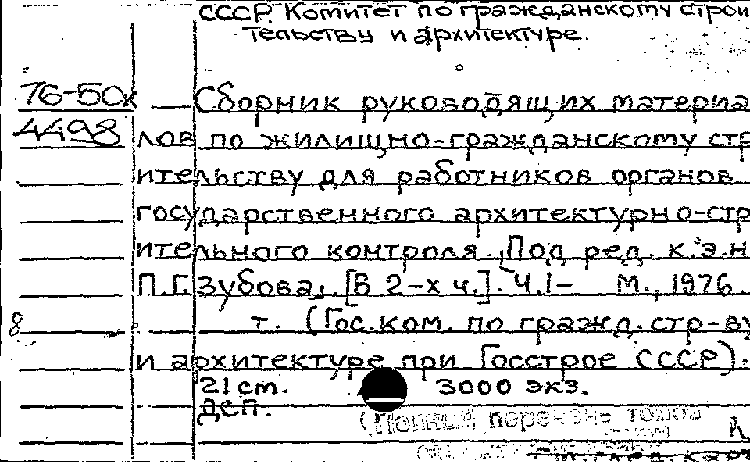 СССР. Комитет по гражданскому строи
тельству и архитектуре.
76-50к — Сборник руководящих материа
4498 лов по жилищно-гражданскому стро
ительству для работников органов
государственного архитектурно-стр
ительного контроля. Под ред. к.э.н
П.Г. Зубова. [В 2-х ч.]. Ч.1- М., 1976.
8 т. (Гос.ком. по гражд.стр-ву
и архитектуре при Госстрое СССР).
21 см. 3000 экз.
ДСП.
(Полный перечень томов